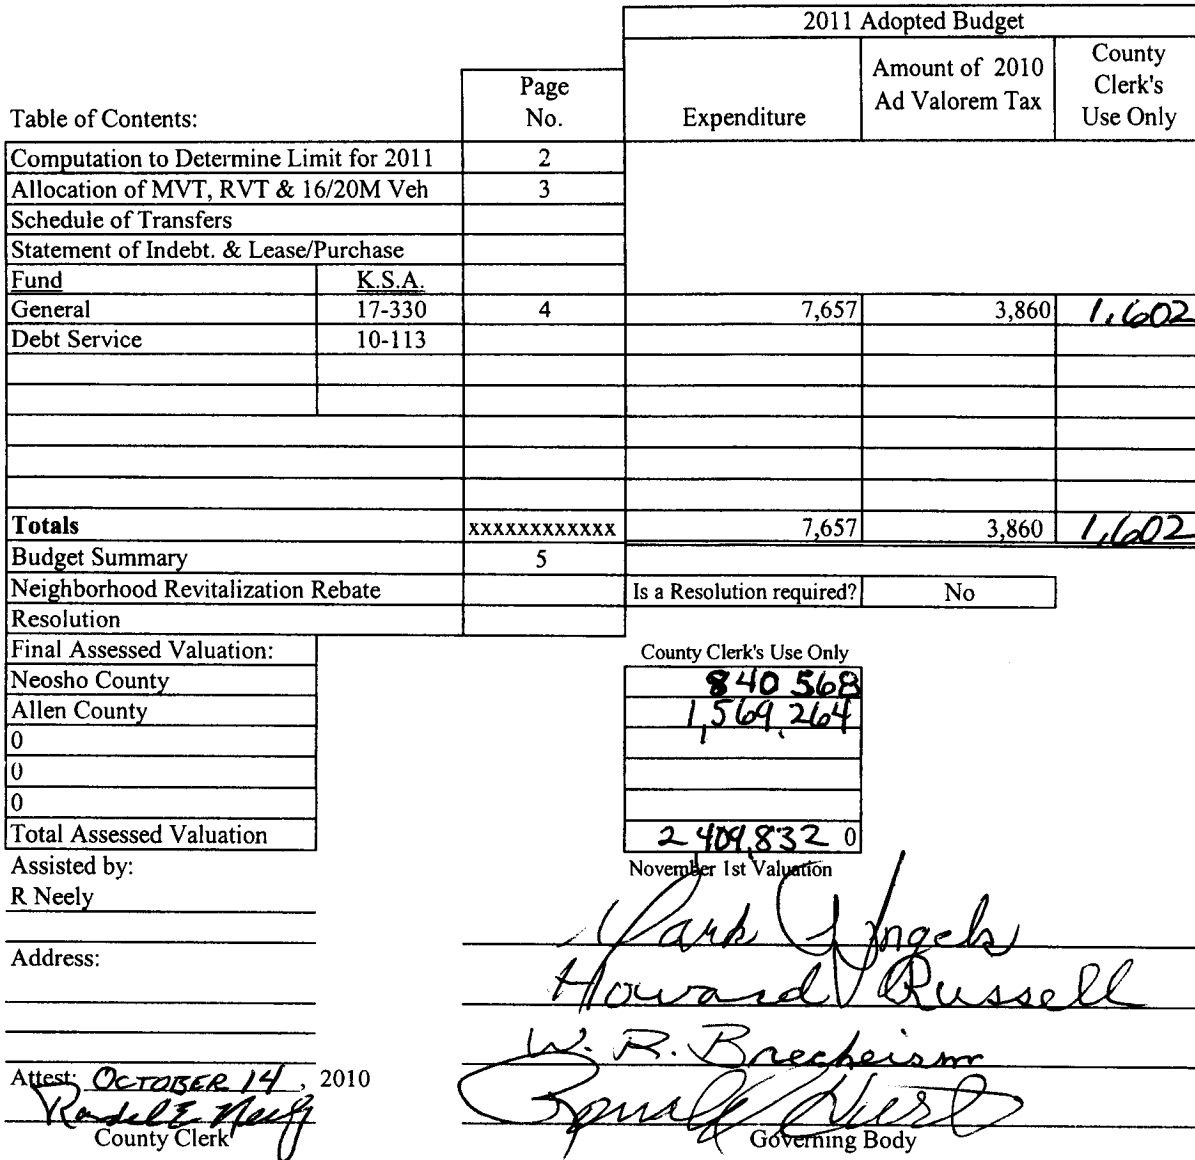 2011 Adopted Budget
Table of Contents: Page No. Expenditure Amount of 2010 Ad Valorem Tax County Clerk's Use Only
Computation to Determine Limit for 2011 2
Allocation of MVT, RVT & 16/20M Veh 3
Schedule of Transfers
Statement of Indebt. & Lease/Purchase
Fund K.S.A.
General 17-330 4 7,657 3,860 1.602
Debt Service 10-113
Totals xxxxxxxxxxxx 7,657 3,860 1,602
Budget Summary 5
Neighborhood Revitalization Rebate Is a Resolution required? No
Resolution
Final Assessed Valuation: County Clerk's Use Only
Neosho County 840 568
Allen County 1,569,264
0
0
0
Total Assessed Valuation 2 409,832 0
Assisted by: November 1st Valuation
R Neely
Mark Angels
Address:
Howard Russell
W. R.
Attest: OCTOBER 14, 2010
Randal E Neely Ronald
County Clerk Governing Body